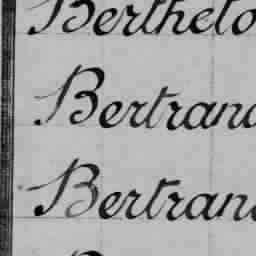 Bertheло
Bertrand
Bertrand